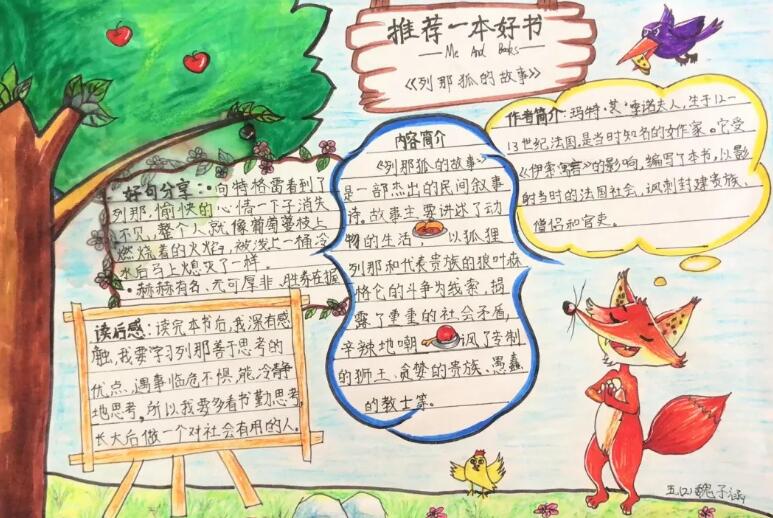 推荐一本好书
Me And Books
《列那狐的故事》
作者简介:玛特·艾·季诺夫人,生于12-
13世纪法国,是当时知名的女作家。它受
《伊索寓言》的影响,编写了本书,以影
射当时的法国社会,讽刺封建贵族、
僧侣和官吏。
内容简介
《列那狐的故事》
是一部杰出的民间叙事
诗,故事主要讲述了动
物的生活,以狐狸
列那和代表贵族的狼叶森
格仑的斗争为线索,揭
露了重重的社会矛盾,
辛辣地嘲讽了专制
的狮王、贪婪的贵族、愚蠢
的教士等。
好句分享:·向特格雷看到了
列那,愉快的心情一下子消失
不见,整个人就像葡萄蔓枝上
燃烧着的火焰,被浇上一桶冷
水后马上熄灭了一样。
·赫赫有名、无可厚非、胜券在握
读后感:读完本书后,我深有感
触,我要学习列那善于思考的
优点,遇事临危不惧,能冷静
地思考。所以我要多看书勤思考,
长大后做一个对社会有用的人。
五(2)魏子涵